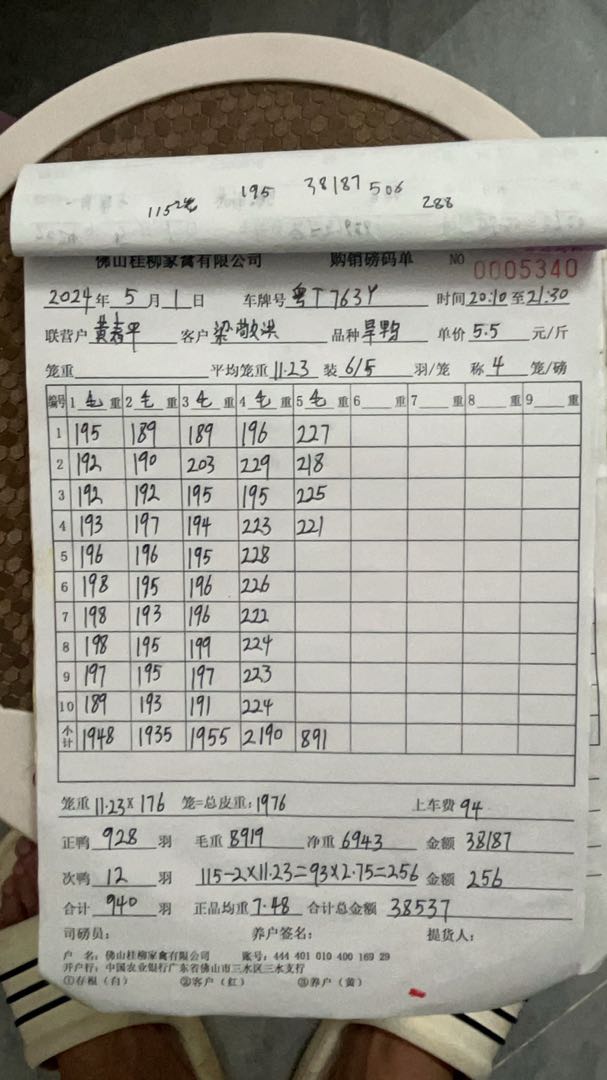 195 38187 506
115 288
佛山桂柳家禽有限公司 购销磅码单 NO 0005340
2024年 5月 1日 车牌号 粤T763Y 时间 20:10 至 21:30
联营户 黄嘉平 客户 梁敬洪 品种 旱鸭 单价 5.5 元/斤
笼重 平均笼重 11.23 装 6/5 羽/笼 称 4 笼/磅
编号 1 毛 重 2 毛 重 3 毛 重 4 毛 重 5 毛 重 6 重 7 重 8 重 9 重
1 195 189 189 196 227
2 192 190 203 229 218
3 192 192 195 195 225
4 193 197 194 223 221
5 196 196 195 228
6 198 195 196 226
7 198 193 196 222
8 198 195 199 224
9 197 195 197 223
10 189 193 191 224
小计 1948 1935 1955 2190 891
笼重 11.23×176 笼=总皮重: 1976 上车费 94
正鸭 928 羽 毛重 8919 净重 6943 金额 38187
次鸭 12 羽 115-2×11.23=93×2.75=256 金额 256
合计 940 羽 正品均重 7.48 合计总金额 38537
司磅员: 养户签名: 提货人:
户 名: 佛山桂柳家禽有限公司 账号: 444 401 010 400 169 29
开户行: 中国农业银行广东省佛山市三水区三水支行
①存根(白) ②客户(红) ③养户(黄)